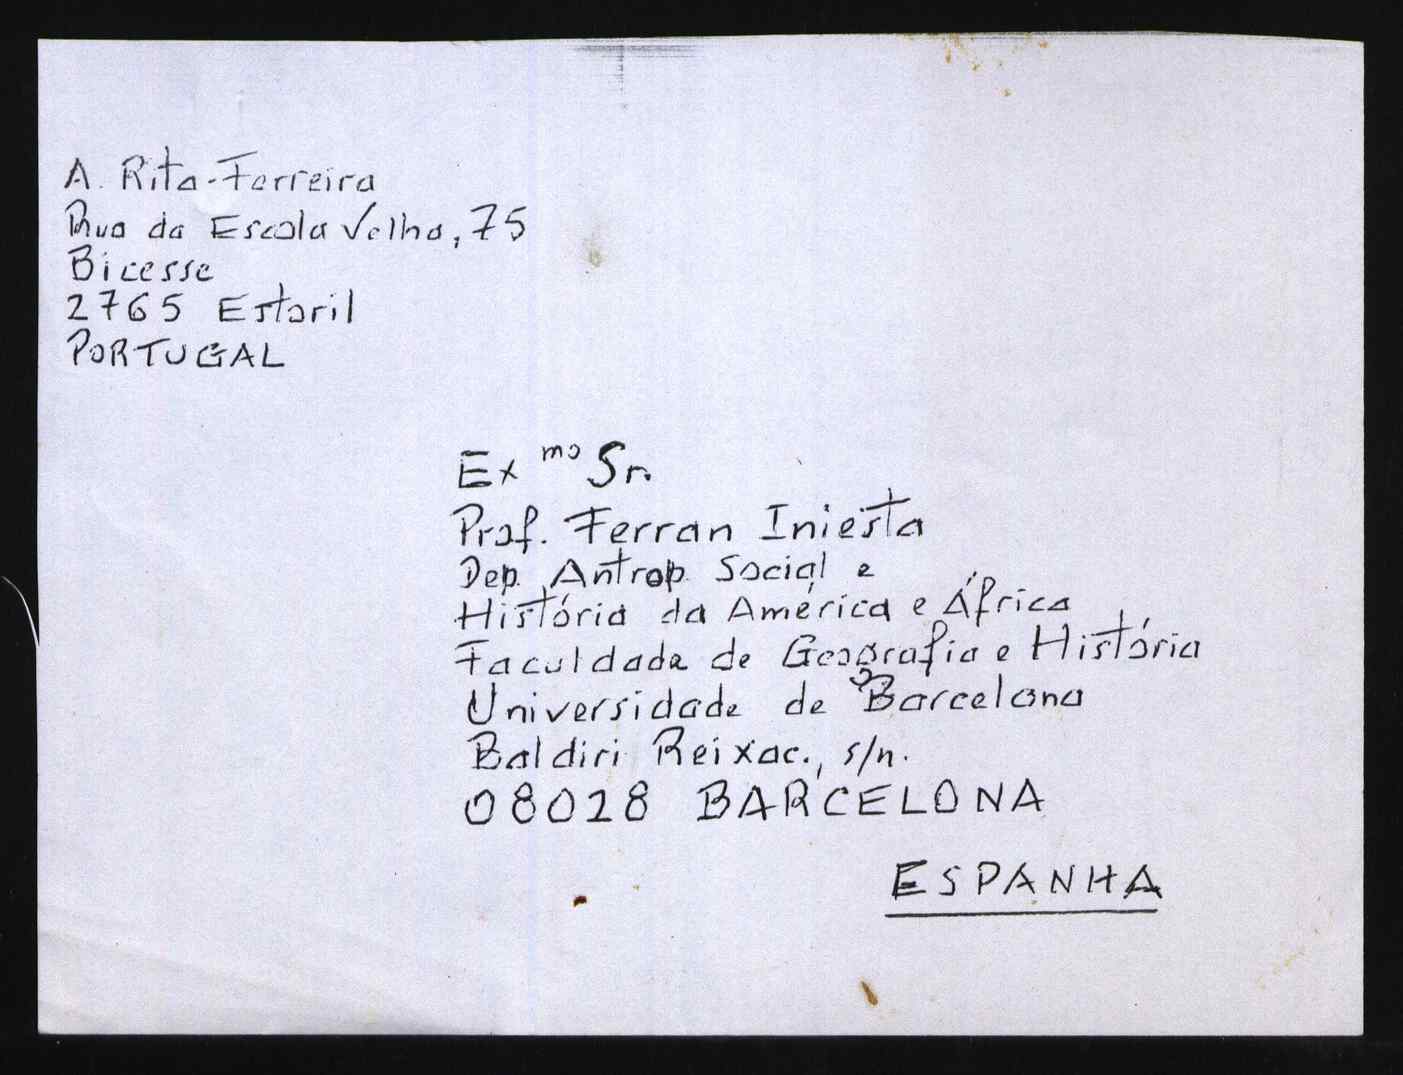 A. Rita-Ferreira
Rua da Escola Velha, 75
Bicesse
2765 Estoril
PORTUGAL
Ex mo Sr.
Prof. Ferran Iniesta
Dep. Antrop. Social e
História da América e África
Faculdade de Geografia e História
Universidade de Barcelona
Baldiri Reixac., s/n.
08028 BARCELONA
ESPANHA